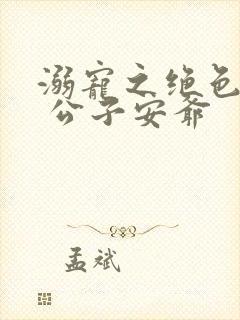 溺寵之绝色
公子安爺
孟斌